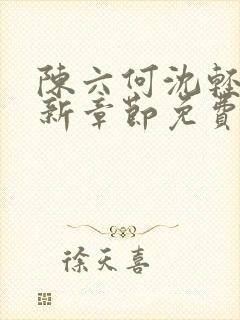 陳六何沈輕
新章節免費
徐天喜